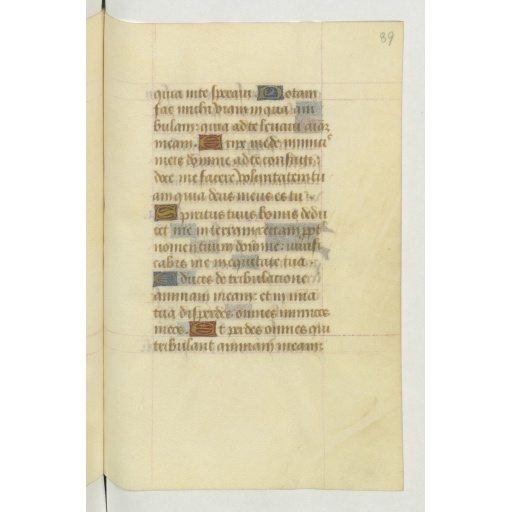 89
quia in te speravi. Notam
fac michi viam in qua am
bulem: quia ad te levavi
meam. Eripe me de inimicis
meis domine ad te confugi:
doce me facere voluntatem tu
am quia deus meus es tu
Spiritus tuus bonus dedu
cet me in terram rectam
nomen tuum domine: vivifi
cabis me in equitate tua
Educes de tribulatione
animam meam: et in mia
tua disperdes omnes inimicos
meos. Et perdes omnes qui
tribulant animam meam: